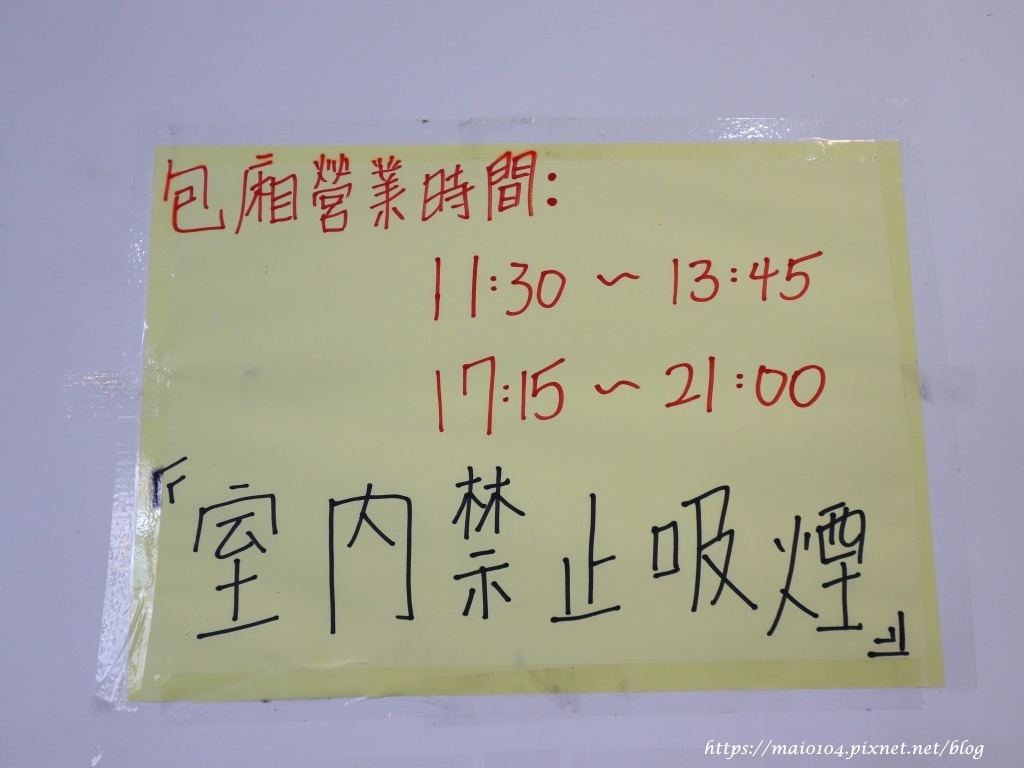 包廂營業時間:
11:30 ~ 13:45
17:15 ~ 21:00
『室內禁止吸煙』
https://maio104.pixnet.net/blog